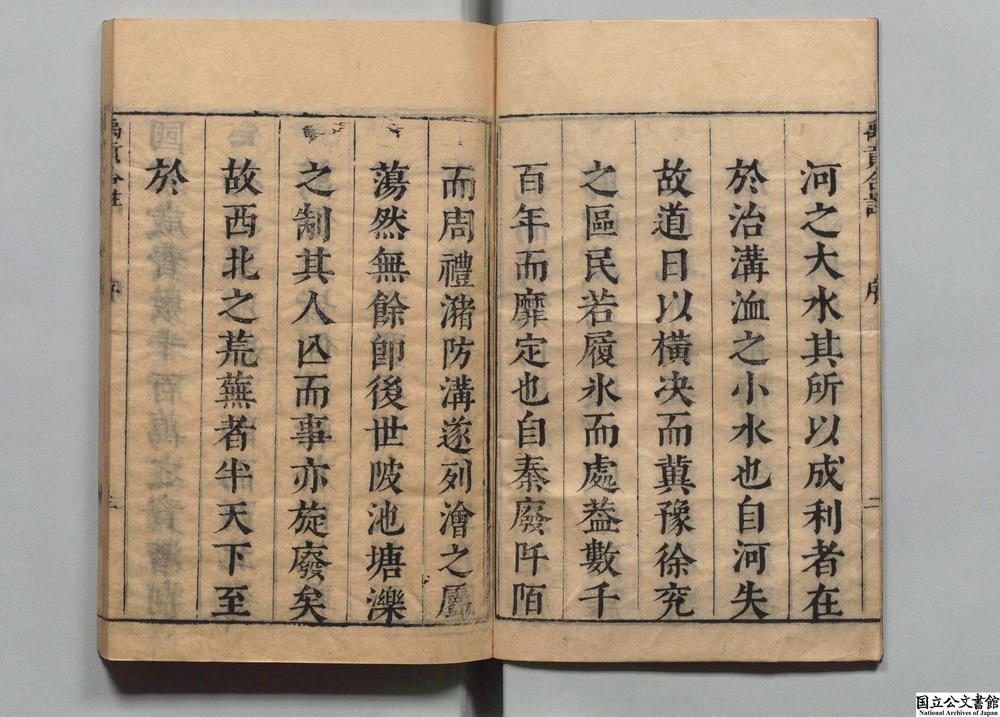 河之大水其所以成利者在
於治溝洫之小水也自河失
故道日以橫決而冀豫徐兖
之區民若履氷而處葢數千
百年而靡定也自秦廢阡陌
而周禮瀦防溝遂列澮之屬
蕩然無餘卽後世陂池塘濼
之制其人亾而事亦旋廢矣
故西北之荒蕪者半天下至
於
禹貢合註
序
二
国立公文書館
National Archives of Japan